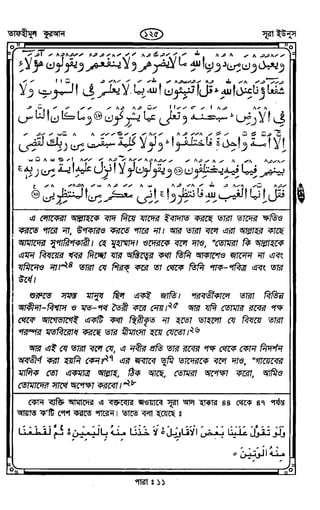 তাফহীমুল কুরআন
১২৫
সূরা ইউনুস
وَيَعْبُدُونَ مِنْ دُونِ اللهِ مَا لَا يَضُرُّهُمْ وَلَا يَنْفَعُهُمْ وَيَقُولُونَ هَؤُلَاءِ
شُفَعَاؤُنَا عِنْدَ اللهِ قُلْ أَتُنَبِّئُونَ اللهَ بِمَا لَا يَعْلَمُ فِي السَّمَوَاتِ وَلَا
فِي الْأَرْضِ سُبْحَنَهُ وَتَعَلَى عَمَّا يُشْرِكُونَ وَمَا كَانَ النَّاسُ
إِلَّا أُمَّةً وَاحِدَةً فَاخْتَلَفُوا وَلَوْلَا كَلِمَةٌ سَبَقَتْ مِنْ رَبِّكَ لَقُضِيَ
بَيْنَهُمْ فِيمَا فِيهِ يَخْتَلِفُونَ وَيَقُولُونَ لَوْلَا أُنْزِلَ عَلَيْهِ آيَةٌ مِنْ رَبِّهِ
فَقُلْ إِنَّمَا الْغَيْبُ لِلَّهِ فَانْتَظِرُوا إِنِّي مَعَكُمْ مِنَ الْمُنْتَظِرِينَ
এ লোকেরা আল্লাহকে বাদ দিয়ে যাদের ইবাদাত করছে তারা তাদের ক্ষতিও
করতে পারে না, উপকারও করতে পারে না। আর তারা বলে এরা আল্লাহর কাছে
আমাদের সুপারিশকারী। হে মুহাম্মাদ! ওদেরকে বলে দাও, "তোমরা কি আল্লাহকে
এমন বিষয়ের খবর দিচ্ছো যার অস্তিত্বের কথা তিনি আকাশেও জানেন না এবং
যমিনেও না।"২৪ তারা যে শিরক্ করে তা থেকে তিনি পাক-পবিত্র এবং তার
উর্ধে।
শুরুতে সমস্ত মানুষ ছিল একই জাতি। পরবর্তীকালে তারা বিভিন্ন
আকীদা-বিশ্বাস ও মত-পথ তৈরী করে নেয়।২৫ আর যদি তোমার রবের পক্ষ
থেকে আগেভাগেই একটি কথা স্থিরীকৃত না হতো তাহলে যে বিষয়ে তারা
পরস্পর মতবিরোধ করছে তার মীমাংসা হয়ে যেতো।২৬
আর এই যে তারা বলে যে, এ নবীর প্রতি তার রবের পক্ষ থেকে কোন নিদর্শন
অবতীর্ণ করা হয়নি কেন?২৭ এর জবাবে তুমি তাদেরকে বলে দাও, "গায়েবের
মালিক তো একমাত্র আল্লাহ, ঠিক আছে, তোমরা অপেক্ষা করো, আমিও
তোমাদের সাথে অপেক্ষা করবো।"২৮
কোন ব্যক্তি আমাদের এ বক্তব্যের জওয়াবে সূরা আল হাক্কার ৪৪ থেকে ৪৭ পর্যন্ত
আয়াত ক'টি পেশ করতে পারেন। তাতে বলা হয়েছে ঃ
وَلَوْ تَقَوَّلَ عَلَيْنَا بَعْضَ الْأَقَاوِيلِ لَأَخَذْنَا مِنْهُ بِالْيَمِينِ ثُمَّ لَقَطَعْنَا
مِنْهُ الْوَتِينَ
পারা ঃ ১১